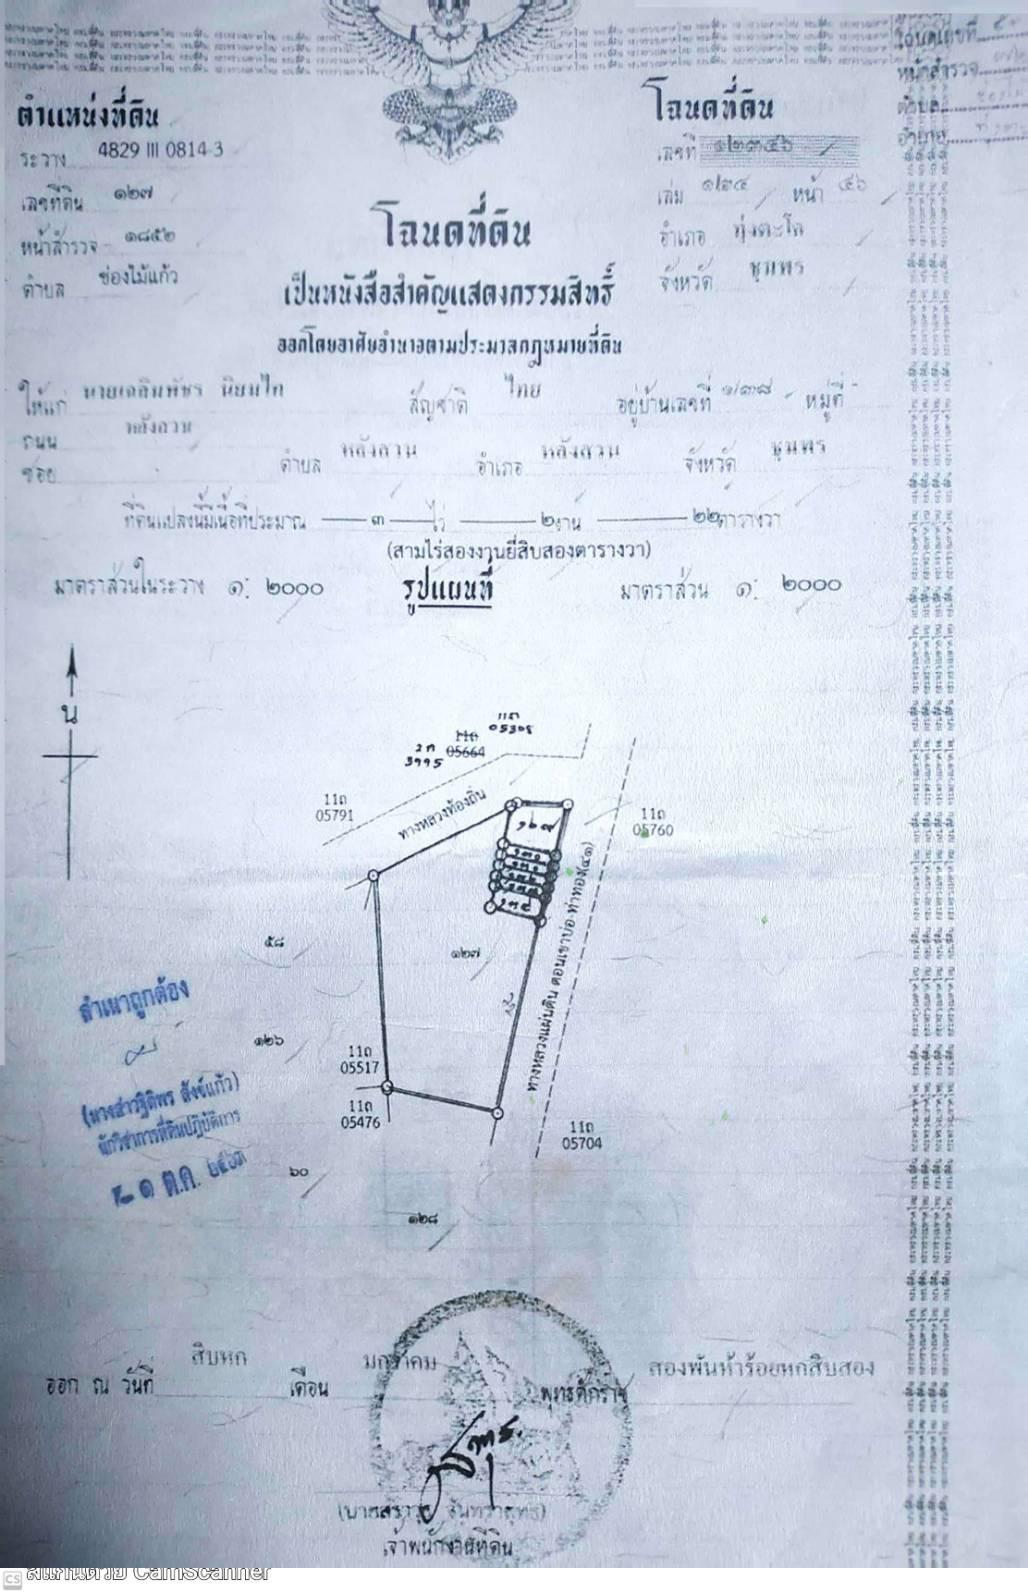 โฉนดเลขที่
หน้าสำรวจ
ตำบล
อำเภอ
ตำแหน่งที่ดิน
ระวาง 4829 III 0814-3
เลขที่ดิน ๑๒๗
หน้าสำรวจ ๑๘๕๒
ตำบล ช่องไม้แก้ว
โฉนดที่ดิน
เลขที่ ๑๒๓๔๖
เล่ม ๑๒๔ หน้า ๔๖
อำเภอ ทุ่งตะโก
จังหวัด ชุมพร
โฉนดที่ดิน
เป็นหนังสือสำคัญแสดงกรรมสิทธิ์
ออกโดยอาศัยอำนาจตามประมวลกฎหมายที่ดิน
ให้แก่ นายเฉลิมพัชร นิยมไท สัญชาติ ไทย อยู่บ้านเลขที่ ๑/๓๘ หมู่ที่ -
ถนน หลังสวน
ซอย ตำบล หลังสวน อำเภอ หลังสวน จังหวัด ชุมพร
ที่ดินแปลงนี้มีเนื้อที่ประมาณ ๓ ไร่ ๒ งาน ๒๒ ตารางวา
(สามไร่สองงานยี่สิบสองตารางวา)
มาตราส่วนในระวาง ๑: ๒๐๐๐ รูปแผนที่ มาตราส่วน ๑: ๒๐๐๐
น
11ถ
05664
11ถ
05791
ทางหลวงท้องถิ่น
11ถ
05760
๑๒๙
๑๓๐
๑๓๑
๑๓๒
๑๓๓
๑๓๔
ทางหลวงแผ่นดิน ตอนเขาบ่อ-ท่าทอง(๔๑)
๕๘
๑๒๗
สำเนาถูกต้อง
๑๒๖
11ถ
05517
11ถ
05476
(นางสาวฐิติพร สังข์แก้ว)
นักวิชาการที่ดินปฏิบัติการ
๒๑ ต.ค. ๒๕๖๓
11ถ
05704
๖๐
๑๒๘
ออก ณ วันที่ สิบหก เดือน มกราคม พุทธศักราช สองพันห้าร้อยหกสิบสอง
เจ้าพนักงานที่ดิน
CS สแกนด้วย CamScanner